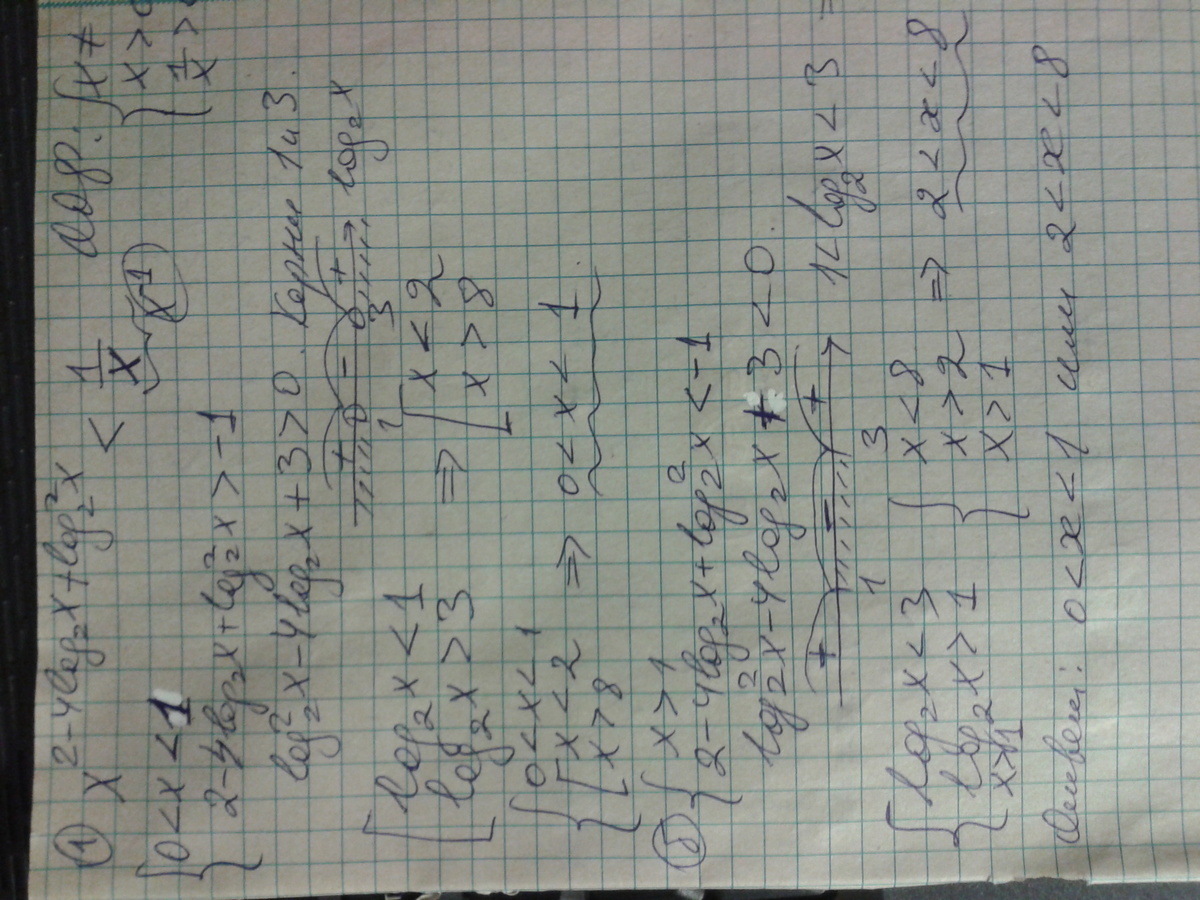 ① x^(2-4log₂x+log₂²x) < 1/x    x⁻¹    { x ≠
x > 0
1/x >
{ 0 < x < 1
2-4log₂x+log₂²x > -1
log₂²x-4log₂x+3>0. Корни 1 и 3.
+ - +
1 3 log₂x
[ log₂x < 1
log₂x > 3 ⇒ [ x < 2
x > 8
{ 0 < x < 1
[ x < 2
x > 8 ⇒ 0 < x < 1
⑤ { x > 1
2-4log₂x+log₂²x < -1
log₂²x-4log₂x+3 < 0.
+ - + 1 < log₂x < 3 =
1 3
{ log₂x < 3
log₂x > 1
x > 1 { x < 8
x > 2
x > 1 ⇒ 2 < x < 8
Ответ: 0 < x < 1 или 2 < x < 8